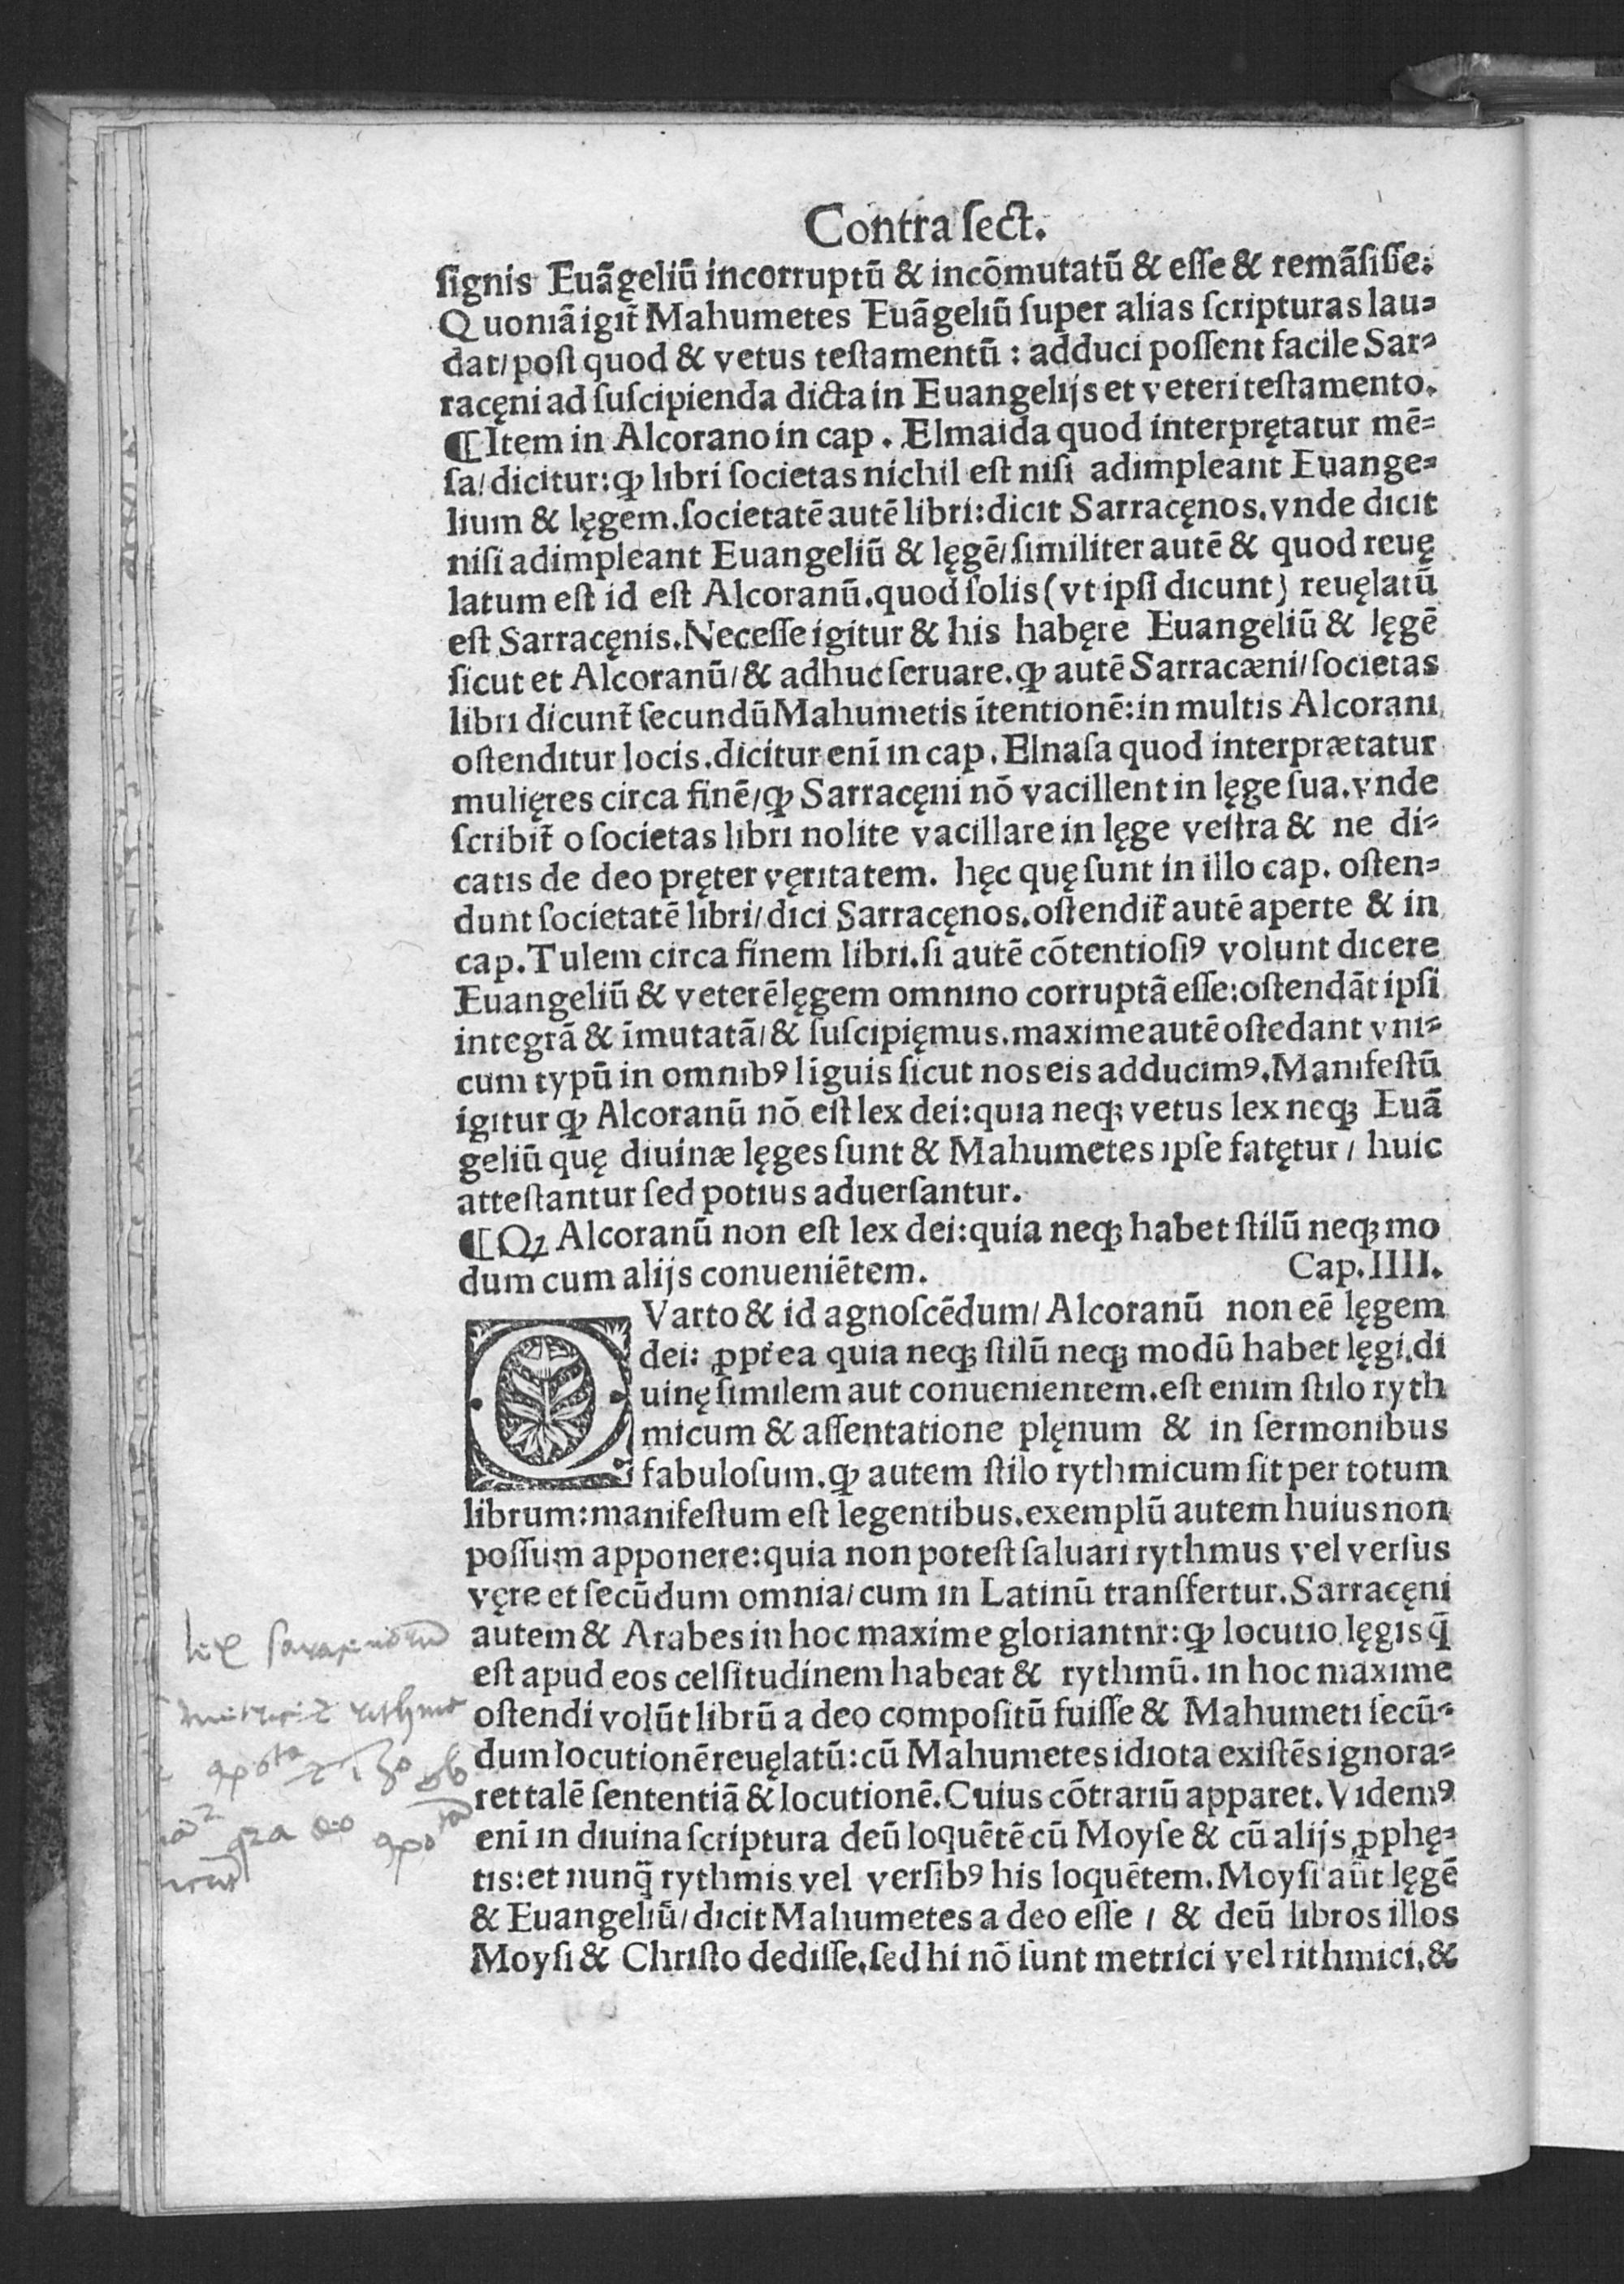 Contra ſect.
ſignis Euãgeliũ incorruptũ & incõmutatũ & eſſe & remãſiſſe:
Quoniã igit̃ Mahumetes Euãgeliũ ſuper alias ſcripturas lau⸗
dat/ poſt quod & vetus teſtamentũ : adduci poſſent facile Sar⸗
racęni ad ſuſcipienda dicta in Euangelijs et veteri teſtamento.
¶ Item in Alcorano in cap . Elmaida quod interprętatur mẽ⸗
ſa/ dicitur: ꝙ libri ſocietas nichil eſt niſi adimpleant Euange⸗
lium & lęgem. ſocietatẽ autẽ libri: dicit Sarracęnos. vnde dicit
niſi adimpleant Euangeliũ & lęgẽ/ ſimiliter autẽ & quod reuę
latum eſt id eſt Alcoranũ. quod ſolis (vt ipſi dicunt) reuęlatũ
eſt Sarracęnis. Neceſſe igitur & his habęre Euangeliũ & lęgẽ
ſicut et Alcoranũ/ & adhuc ſeruare. ꝙ autẽ Sarracæni/ ſocietas
libri dicunt̃ ſecundũ Mahumetis ĩtentionẽ: in multis Alcorani
oſtenditur locis. dicitur enĩ in cap. Elnaſa quod interprætatur
mulięres circa finẽ/ ꝙ Sarracęni nõ vacillent in lęge ſua. vnde
ſcribit̃ o ſocietas libri nolite vacillare in lęge veſtra & ne di⸗
catis de deo pręter vęritatem. hęc quę ſunt in illo cap. oſten⸗
dunt ſocietatẽ libri/ dici Sarracęnos. oſtendit̃ autẽ aperte & in
cap. Tulem circa finem libri. ſi autẽ cõtentioſiꝰ volunt dicere
Euangeliũ & veterẽ lęgem omnino corruptã eſſe: oſtendãt ipſi
integrã & ĩmutatã/ & ſuſcipięmus. maxime autẽ oſtedant vni⸗
cum typũ in omnibꝰ liguis ſicut nos eis adducimꝰ. Manifeſtũ
igitur ꝙ Alcoranũ nõ eſt lex dei: quia neqꝫ vetus lex neqꝫ Euã
geliũ quę diuinæ lęges ſunt & Mahumetes ipſe fatętur / huic
atteſtantur ſed potius aduerſantur.
¶ Qꝫ Alcoranũ non eſt lex dei: quia neqꝫ habet ſtilũ neqꝫ mo
dum cum alijs conueniẽtem. Cap. IIII.
QVarto & id agnoſcẽdum/ Alcoranũ non eẽ lęgem
dei: ꝓpt̃ea quia neqꝫ ſtilũ neqꝫ modũ habet lęgi. di
uinę ſimilem aut conuenientem. eſt enim ſtilo ryth
micum & aſſentatione plęnum & in ſermonibus
fabuloſum. ꝙ autem ſtilo rythmicum ſit per totum
librum: manifeſtum eſt legentibus. exemplũ autem huius non
poſſum apponere: quia non poteſt ſaluari rythmus vel verſus
vęre et ſecũdum omnia/ cum in Latinũ transfertur. Sarracęni
autem & Arabes in hoc maxime gloriantnr: ꝙ locutio lęgis q̃
eſt apud eos celſitudinem habeat & rythmũ. in hoc maxime
oſtendi volũt librũ a deo compoſitũ fuiſſe & Mahumeti ſecũ⸗
dum locutionẽ reuęlatũ: cũ Mahumetes idiota exiſtẽs ignora⸗
ret talẽ ſententiã & locutionẽ. Cuius cõtrariũ apparet. Videmꝰ
enĩ in diuina ſcriptura deũ loquẽtẽ cũ Moyſe & cũ alijs ꝓphę⸗
tis: et nunq̃ rythmis vel verſibꝰ his loquẽtem. Moyſi aũt lęgẽ
& Euangeliũ/ dicit Mahumetes a deo eſſe / & deũ libros illos
Moyſi & Chriſto dediſſe. ſed hi nõ ſunt metrici vel rithmici. &